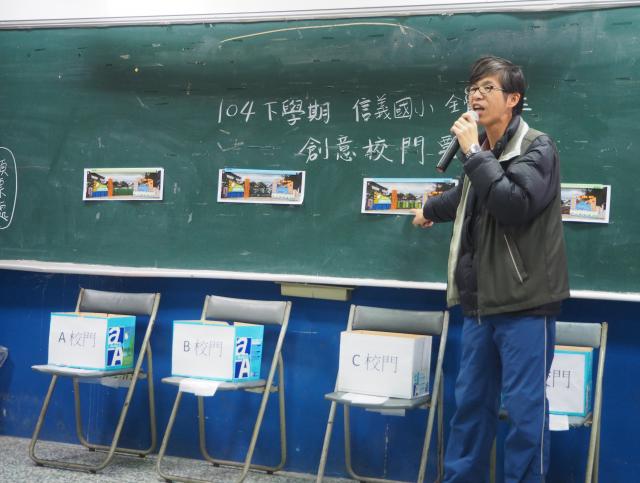 104下學期 信義國小 全
創意校門票
領票處
A校門
B校門
C校門
校門